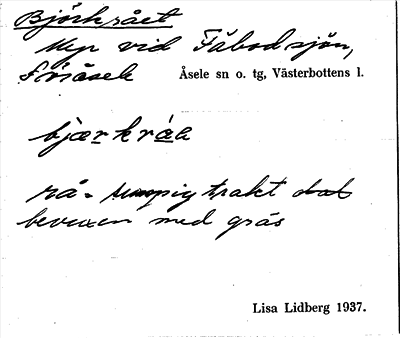 Björkrået
Myr vid Fäbodsjön,
Åsele sn o. tg, Västerbottens l.
bjærkråa
rå = sumpig trakt
bevuxen med gräs
Lisa Lidberg 1937.